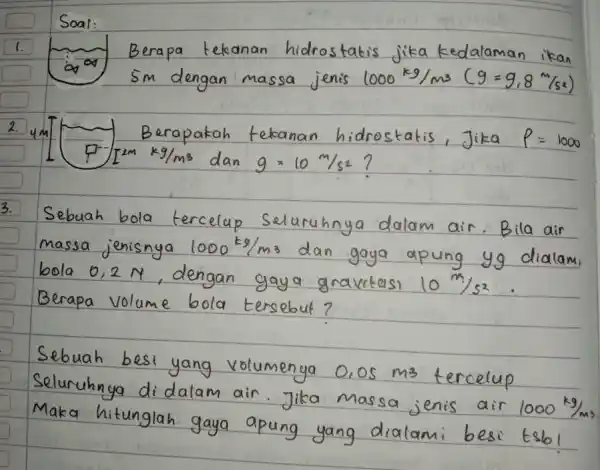 Soal:
1. Berapa tekanan hidrostatis jika kedalaman ikan
5m dengan massa jenis 1000 kg/m3 (g = 9,8 m/s2)
2. 4M Berapakah tekanan hidrostatis, Jika ρ = 1000
P 2m kg/m3 dan g = 10 m/s2 ?
3. Sebuah bola tercelup Seluruhnya dalam air. Bila air
massa jenisnya 1000 kg/m3 dan gaya apung yg dialami
bola 0,2 N, dengan gaya gravitasi 10 m/s2.
Berapa volume bola tersebut?
Sebuah besi yang volumenya 0,05 m3 tercelup
Seluruhnya di dalam air. Jika massa jenis air 1000 kg/m3
Maka hitunglah gaya apung yang dialami besi tsb!